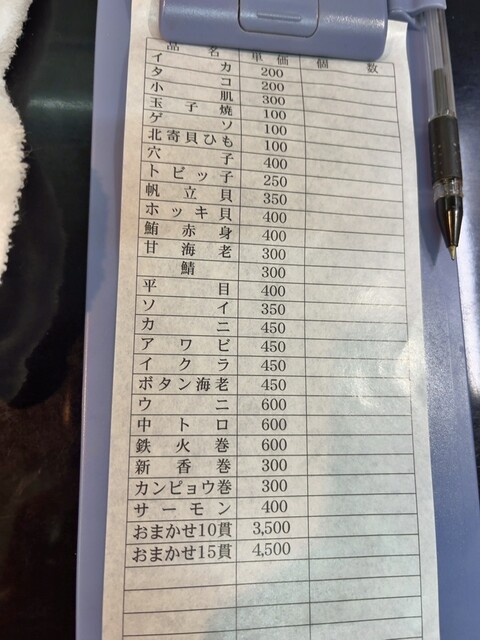 品名 単価 個数
イカ 200
タコ 200
小肌 300
玉子焼 100
ゲソ 100
北寄貝ひも 100
穴子 400
トビッ子 250
帆立貝 350
ホッキ貝 400
鮪赤身 400
甘海老 300
鯖 300
平目 400
ソイ 350
カニ 450
アワビ 450
イクラ 450
ボタン海老 450
ウニ 600
中トロ 600
鉄火巻 600
新香巻 300
カンピョウ巻 300
サーモン 400
おまかせ10貫 3,500
おまかせ15貫 4,500